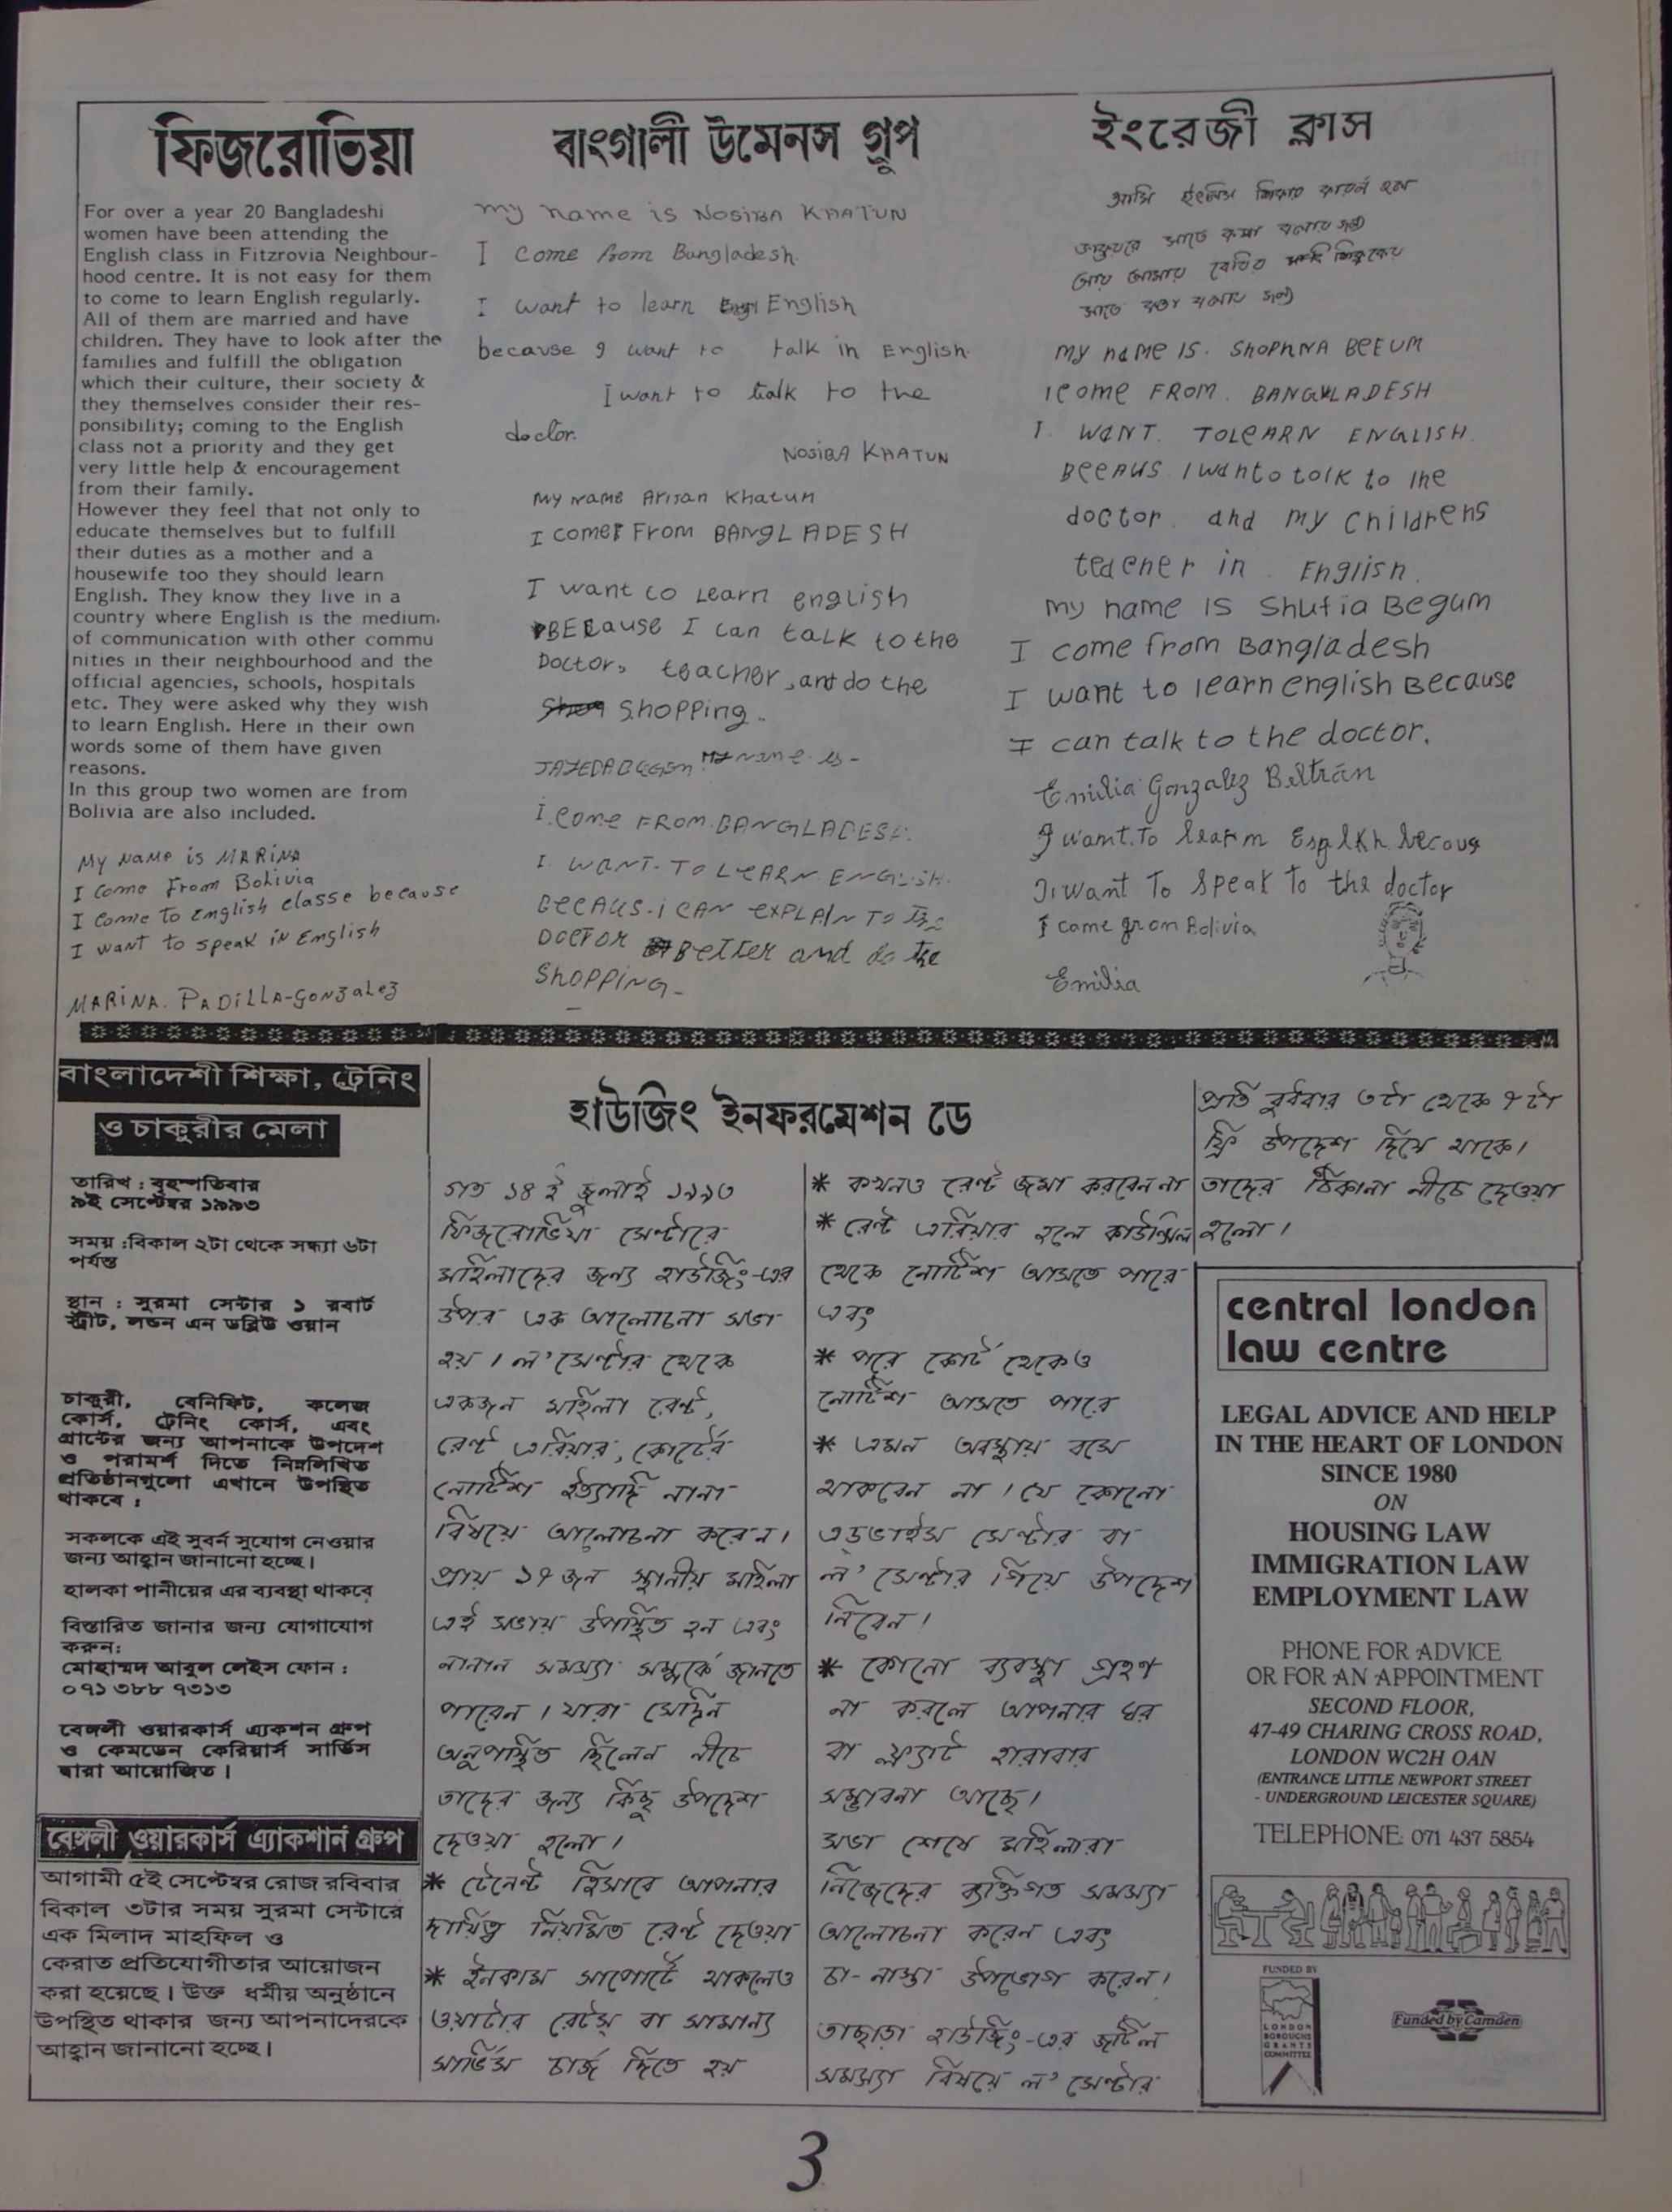 ফিজরোভিয়া
বাংগালী উমেনস গ্রুপ
ইংরেজী ক্লাস
For over a year 20 Bangladeshi
women have been attending the
English class in Fitzrovia Neighbour-
hood centre. It is not easy for them
to come to learn English regularly.
All of them are married and have
children. They have to look after the
families and fulfill the obligation
which their culture, their society &
they themselves consider their res-
ponsibility; coming to the English
class not a priority and they get
very little help & encouragement
from their family.
However they feel that not only to
educate themselves but to fulfill
their duties as a mother and a
housewife too they should learn
English. They know they live in a
country where English is the medium.
of communication with other commu
nities in their neighbourhood and the
official agencies, schools, hospitals
etc. They were asked why they wish
to learn English. Here in their own
words some of them have given
reasons.
In this group two women are from
Bolivia are also included.
My Name is MARINA
I come From Bolivia
I come to English classe because
I want to speak in English
MARINA. PADILLA-GONZALEZ
my name is NOSIBA KHATUN
I come from Bangladesh.
I want to learn English
because I want to talk in English.
I want to talk to the
doctor.
NOSIBA KHATUN
My Name Arisan Khatun
I come From BANGLADESH
I want to Learn english
BECause I can talk to the
Doctor, teacher, and do the
Shopping.
JAYEDA BEGEM My name is-
I. come FROM. BANGLADESH.
I. WANT. TO LEARN. ENGLISH.
BECAUS. I CAN EXPLAIN TO THE
DOCTOR BETTER and do the
SHOPPING-
আমি ইংলিস শিকার কারন হল
ডাক্তারের সাতে কথা বলার জন্য
আর আমার
সাতে কতা বলার জন্য
MY NAME IS. SHOPHNA BEEUM
I COME FROM. BANGLADESH
I. WANT. TOLEARN ENGLISH.
BEEAUS. I wanto tolk to the
doctor. and my childrens
teaener in. English.
My name IS Shufia Begum
I come from Bangladesh
I want to learn english Because
I can talk to the doctor.
Emilia Gonzalez Beltrán
I want. To learn Esglkh becous
I want To speak To the doctor
I came from Bolivia
Emilia
বাংলাদেশী শিক্ষা, ট্রেনিং
ও চাকুরীর মেলা
তারিখ : বৃহস্পতিবার
৯ই সেপ্টেম্বর ১৯৯৩
সময় :বিকাল ২টা থেকে সন্ধ্যা ৬টা
পর্যন্ত
স্থান : সুরমা সেন্টার ১ রবার্ট
স্ট্রীট, লন্ডন এন ডব্লিউ ওয়ান
চাকুরী, বেনিফিট, কলেজ
কোর্স, ট্রেনিং কোর্স, এবং
গ্রান্টের জন্য আপনাকে উপদেশ
ও পরামর্শ দিতে নিম্নলিখিত
প্রতিষ্ঠানগুলো এখানে উপস্থিত
থাকবে :
সকলকে এই সুবর্ন সুযোগ নেওয়ার
জন্য আহ্বান জানানো হচ্ছে।
হালকা পানীয়ের এর ব্যবস্থা থাকবে
বিস্তারিত জানার জন্য যোগাযোগ
করুন:
মোহাম্মদ আবুল লেইস ফোন :
০৭১ ৩৮৮ ৭৩১৩
বেঙ্গলী ওয়ারকার্স এ্যকশন গ্রুপ
ও কেমডেন কেরিয়ার্স সার্ভিস
দ্বারা আয়োজিত।
বেঙ্গলী ওয়ারকার্স এ্যাকশান গ্রুপ
আগামী ৫ই সেপ্টেম্বর রোজ রবিবার
বিকাল ৩টার সময় সুরমা সেন্টারে
এক মিলাদ মাহফিল ও
কেরাত প্রতিযোগীতার আয়োজন
করা হয়েছে। উক্ত ধর্মীয় অনুষ্ঠানে
উপস্থিত থাকার জন্য আপনাদেরকে
আহ্বান জানানো হচ্ছে।
হাউজিং ইনফরমেশন ডে
গত ১৪ ই জুলাই ১৯৯৩
ফিজরোভিয়া সেন্টারে
মহিলাদের জন্য হাউজিং-এর
উপর এক আলোচনা সভা
হয়। ল' সেন্টার থেকে
একজন মহিলা রেন্ট,
রেন্ট এরিয়ার, কোর্টের
নোটিশ ইত্যাদি নানা
বিষয়ে আলোচনা করেন।
প্রায় ১৭ জন স্থানীয় মহিলা
এই সভায় উপস্থিত হন এবং
নানান সমস্যা সম্পর্কে জানতে
পারেন। যারা সেদিন
অনুপস্থিত ছিলেন নীচে
তাদের জন্য কিছু উপদেশ
দেওয়া হলো।
* টেনেন্ট হিসাবে আপনার
দায়িত্ব নিয়মিত রেন্ট দেওয়া
* ইনকাম সাপোর্টে থাকলেও
ওয়াটার রেটস্ বা সামান্য
সার্ভিস চার্জ দিতে হয়
* কখনও রেন্ট জমা করবেন না
* রেন্ট এরিয়ার হলে কাউন্সিল
থেকে নোটিশ আসতে পারে
এবং
* পরে কোর্ট থেকেও
নোটিশ আসতে পারে
* এমন অবস্থায় বসে
থাকবেন না। যে কোনো
এডভাইস সেন্টার বা
ল' সেন্টার গিয়ে উপদেশ
নিবেন।
* কোনো ব্যবস্থা গ্রহণ
না করলে আপনার ঘর
বা ফ্ল্যাট হারাবার
সম্ভাবনা আছে।
সভা শেষে মহিলারা
নিজেদের ব্যক্তিগত সমস্যা
আলোচনা করেন এবং
চা-নাস্তা উপভোগ করেন।
তাছাড়া হাউজিং-এর জটিল
সমস্যা বিষয়ে ল' সেন্টার
প্রতি বুধবার ৩টা থেকে ৭টা
ফ্রি উপদেশ দিয়ে থাকে।
তাদের ঠিকানা নীচে দেওয়া
হলো।
central london
law centre
LEGAL ADVICE AND HELP
IN THE HEART OF LONDON
SINCE 1980
ON
HOUSING LAW
IMMIGRATION LAW
EMPLOYMENT LAW
PHONE FOR ADVICE
OR FOR AN APPOINTMENT
SECOND FLOOR,
47-49 CHARING CROSS ROAD,
LONDON WC2H OAN
(ENTRANCE LITTLE NEWPORT STREET
- UNDERGROUND LEICESTER SQUARE)
TELEPHONE: 071 437 5854
FUNDED BY
LONDON
BOROUGHS
GRANTS
COMMITTEE
Funded by Camden
3